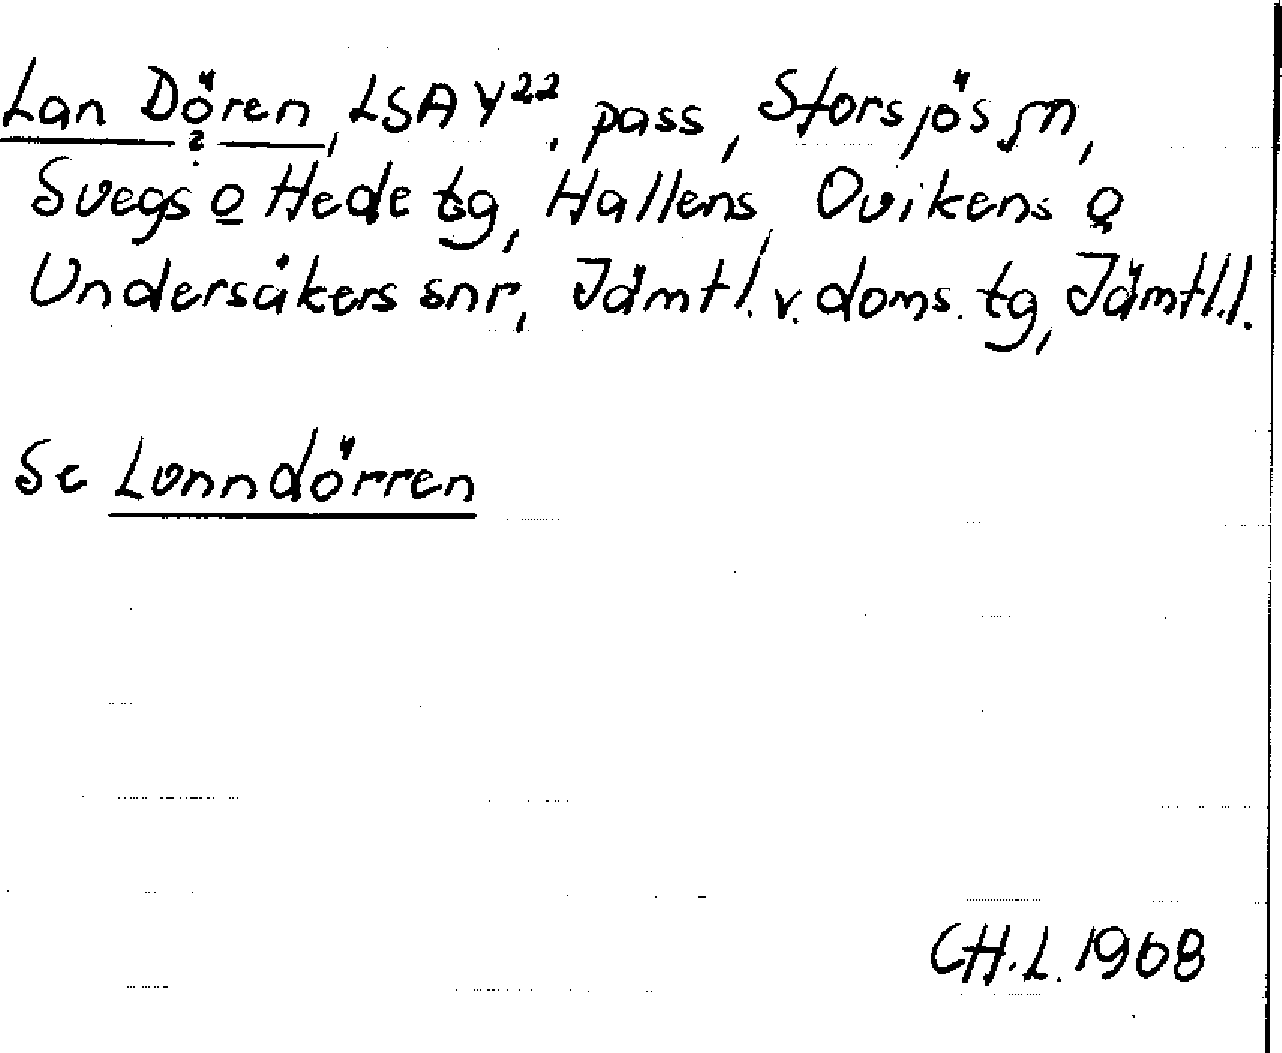 Lan Dören, LSA Y²², pass, Storsjö sn,
?
Svegs o Hede tg, Hallens, Ovikens o
Undersåkers snr, Jämtl. v. doms. tg, Jämtl. l.
Se Lunndörren
CH.L. 1968